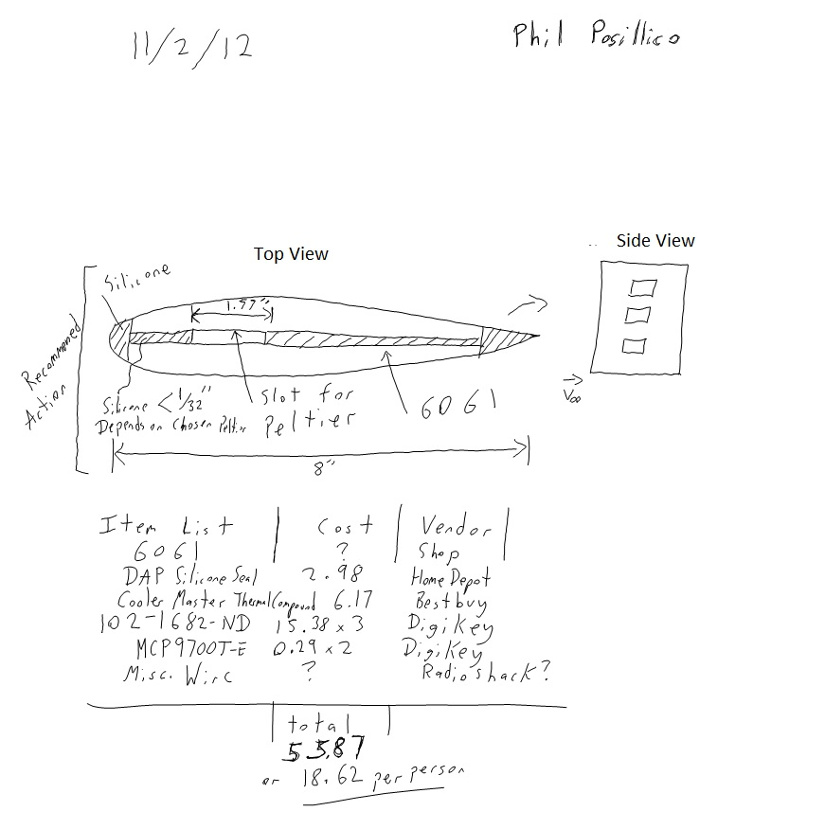 11/2/12
Phil Posillico
Top View
Side View
Recommened
Action
Silicone
1.57"
Silicone < 1/32"
Depends on Chosen Peltier
Slot for
Peltier
6061
V∞
8"
Item List | Cost | Vendor |
6061 ? Shop
DAP Silicone Seal 2.98 Home Depot
Cooler Master Thermal Compound 6.17 Bestbuy
102-1682-ND 15.38 x 3 DigiKey
MCP9700T-E 0.29 x 2 DigiKey
Misc. Wire ? Radioshack?
total
55.87
or 18.62 per person